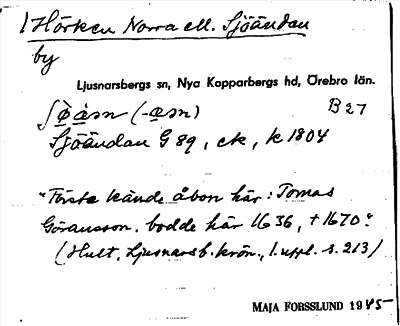 1 Hörken Norra ell. Sjöändan
by
Ljusnarsbergs sn, Nya Kopparbergs hd, Örebro län.
B 27
Sjöändan G 89, ek, k 1804
"Förste kände åbon här: Tomas
Göransson, bodde här 1636, † 1670".
(Hult, Ljusnarsb. krön., 1. uppl. s. 213)
MAJA FORSSLUND 1945